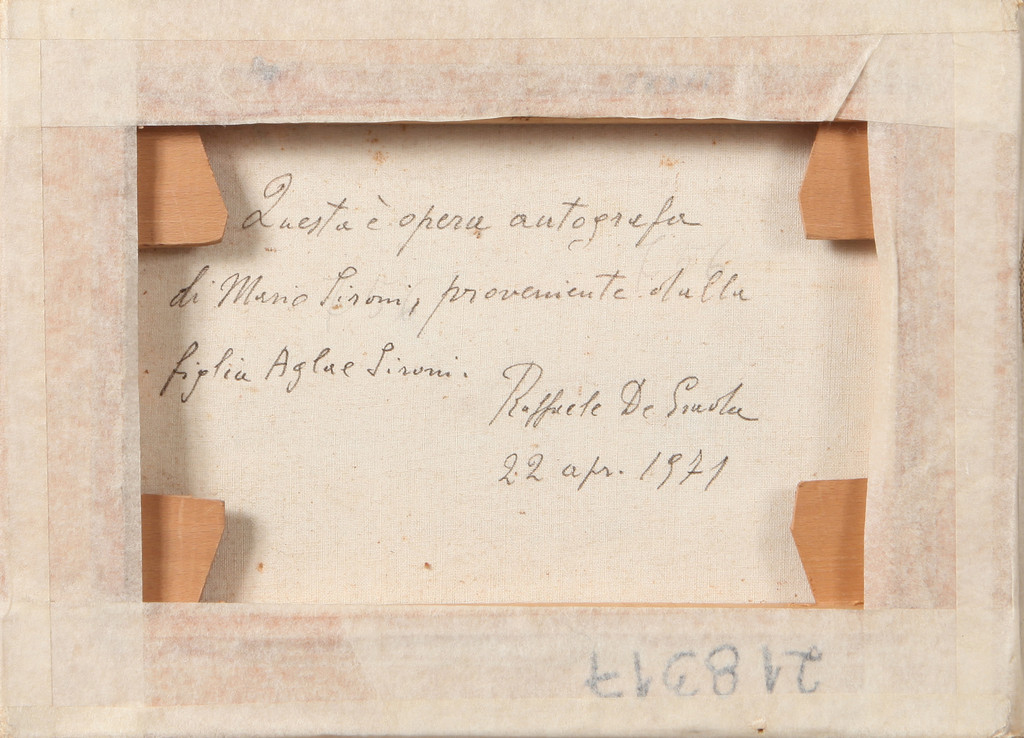 Questa è opera autografa
di Mario Sironi, proveniente dalla
figlia Aglae Sironi.
Raffaele De Grada
22 apr. 1971
218317